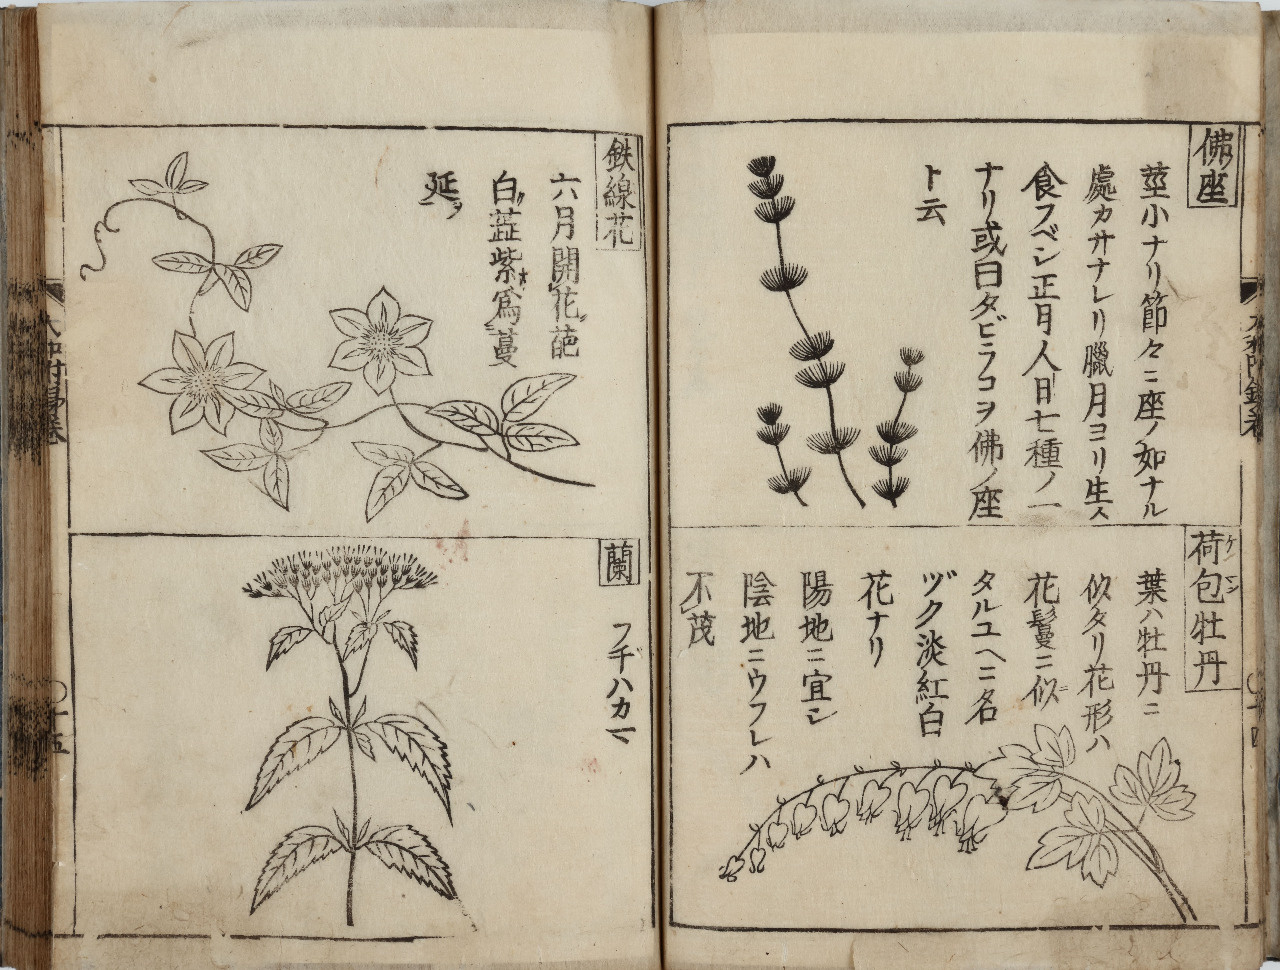 佛座
莖小ナリ節々ニ座ノ如ナル
處カサナレリ臘月ヨリ生ス
食フベシ正月人日七種ノ一
ナリ或曰タビラコヲ佛ノ座
ト云
荷包牡丹
葉ハ牡丹ニ
似タリ花形ハ
花鬘ニ似
タルユヘニ名
ヅク淡紅白
花ナリ
陽地ニ宜シ
陰地ニウフレハ
不茂
鉄線花
六月開花葩
白蘂紫為蔓
延
蘭
フチハカマ
十五